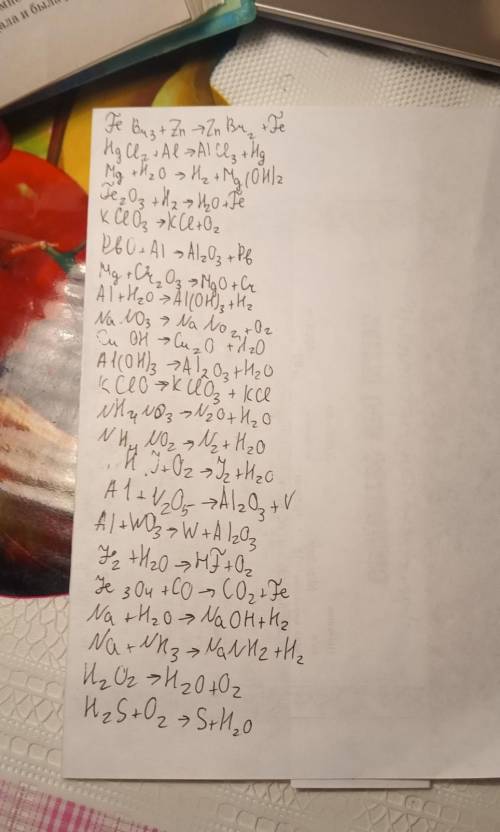 ала и была
FeBr₃ + Zn → ZnBr₂ + Fe
HgCl₂ + Al → AlCl₃ + Hg
Mg + H₂O → H₂ + Mg(OH)₂
Fe₂O₃ + H₂ → H₂O + Fe
KClO₃ → KCl + O₂
PbO + Al → Al₂O₃ + Pb
Mg + Cr₂O₃ → MgO + Cr
Al + H₂O → Al(OH)₃ + H₂
NaNO₃ → NaNO₂ + O₂
CuOH → Cu₂O + H₂O
Al(OH)₃ → Al₂O₃ + H₂O
KClO → KClO₃ + KCl
NH₄NO₃ → N₂O + H₂O
NH₄NO₂ → N₂ + H₂O
HJ + O₂ → J₂ + H₂O
Al + V₂O₅ → Al₂O₃ + V
Al + WO₃ → W + Al₂O₃
F₂ + H₂O → HF + O₂
Fe₃O₄ + CO → CO₂ + Fe
Na + H₂O → NaOH + H₂
Na + NH₃ → NaNH₂ + H₂
H₂O₂ → H₂O + O₂
H₂S + O₂ → S + H₂O